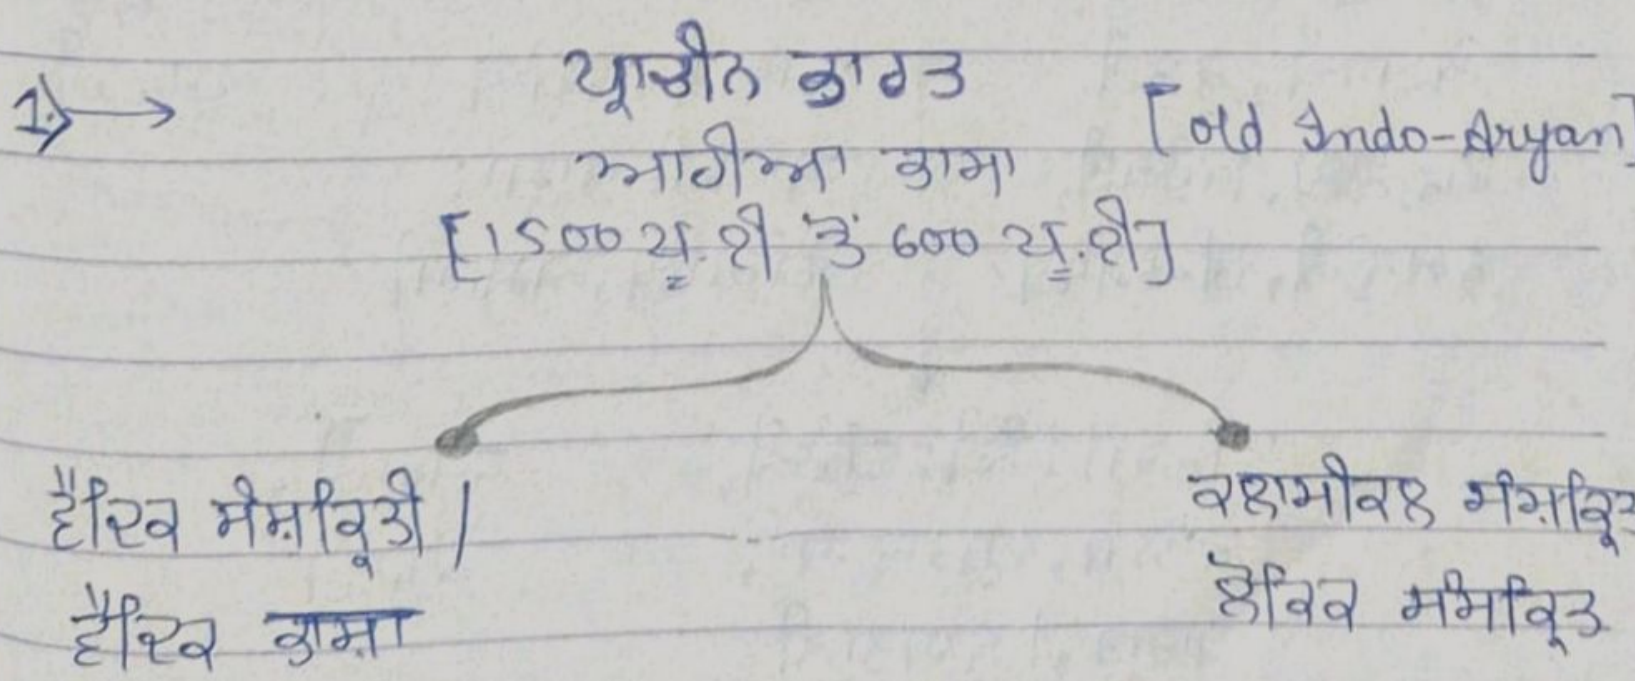 1) → ਪ੍ਰਾਚੀਨ ਭਾਰਤ
ਆਰੀਆ ਭਾਸਾ [old Indo-Aryan]
[1500 ਪੂ.ਈ ਤੋਂ 600 ਪੂ.ਈ]
ਵੈਦਿਕ ਸੰਸ਼ਕ੍ਰਿਤੀ / ਕਲਾਸੀਕਲ ਸੰਸ਼ਕ੍ਰਿਤ
ਵੈਦਿਕ ਭਾਸ਼ਾ ਲੌਕਿਕ ਸੰਸਕ੍ਰਿਤ